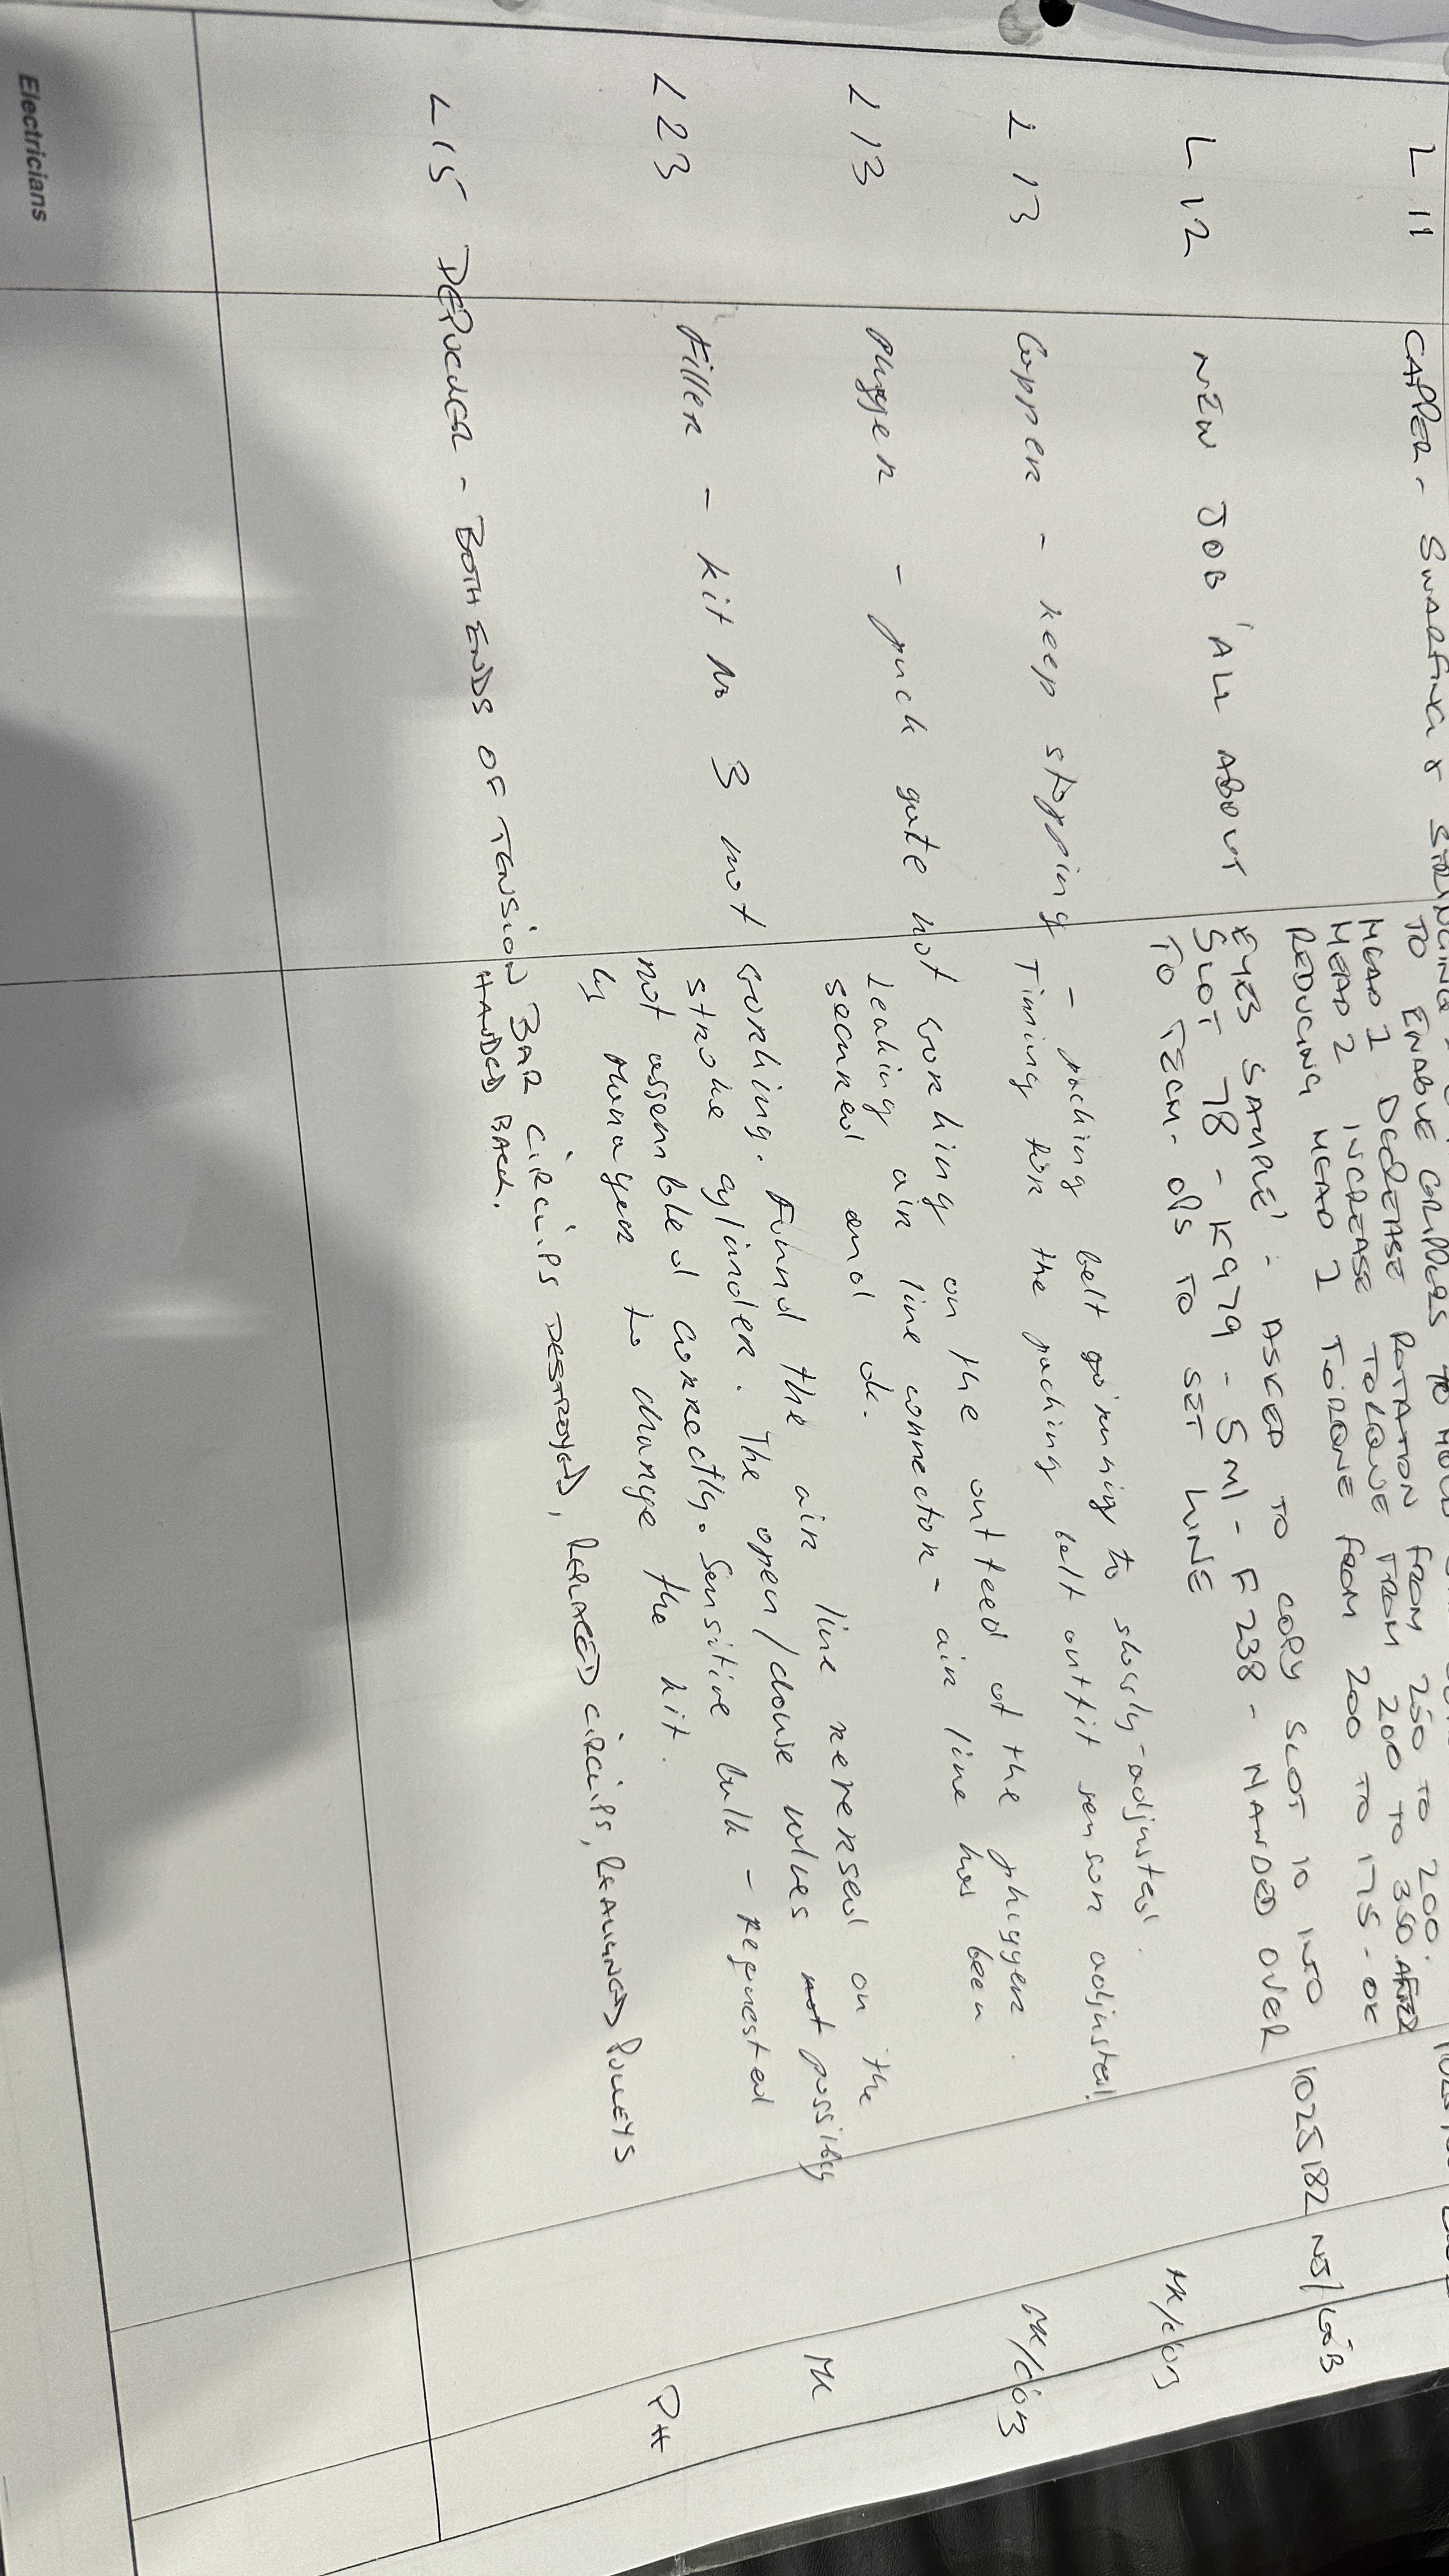 L 11 CAPPER - SWARFING & STRINGING
TO ENABLE GRIPPERS TO HOLD
HEAD 1 DECREASE ROTATION FROM 250 TO 200.
HEAD 2 INCREASE TORQUE FROM 200 TO 350. AFTER
REDUCING HEAD 1 TORQUE FROM 200 TO 175 - OK
L 12 NEW JOB 'ALL ABOUT EYES SAMPLE' - ASKED TO COPY SLOT 10 INTO 1025182 NJ/
SLOT 78 - K979 - 5 ML - F238 - HANDED OVER
TO TECH. OPS TO SET LINE
L 13 Capper - keep stopping - packing belt running to slowly - adjusted.
Timing for the packing belt outfit sensor adjusted!
L 13 Plugger - puck gate not working on the outfeed of the plugger.
Leaking air line connector - air line has been
secured and ok.
L 23 Filler - kit no 3 not working. Found the air line reversed on the MK
stroke cylinder. The open/clouse valves not possibly
not assembled correctly. Sensitive bulk - requested
by manager to change the kit.
L 15 DEPUCKER - BOTH ENDS OF TENSION BAR CIRCLIPS DESTROYED, REPLACED CIRCLIPS, REALIGNED PULLEYS PH
HANDED BACK.
Electricians